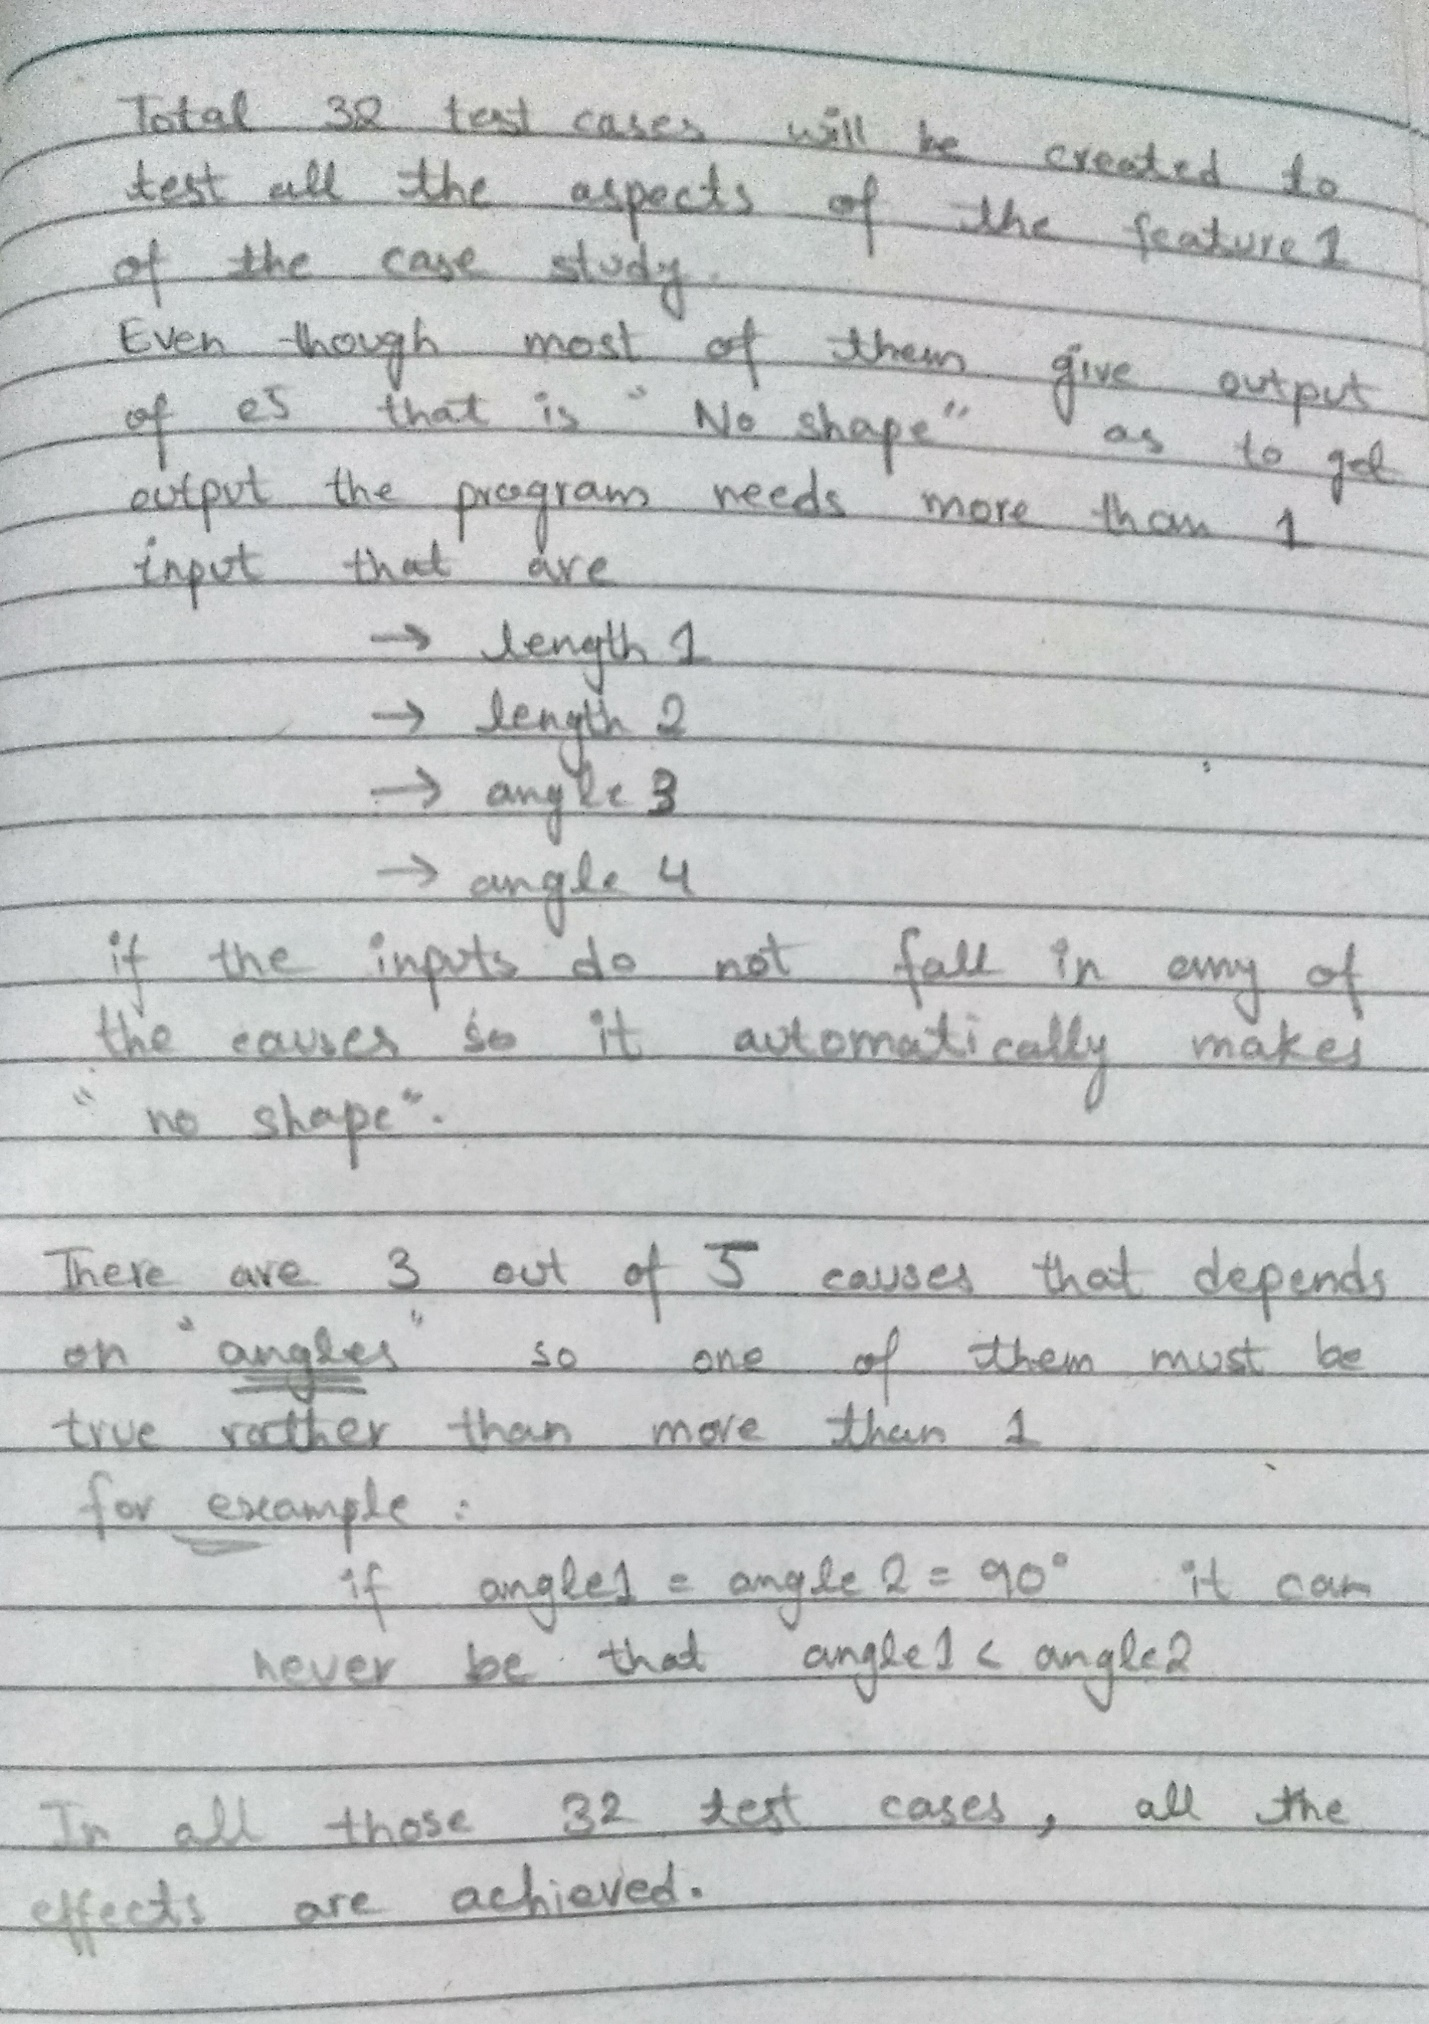 Total 32 test cases will be created to
test all the aspects of the feature 1
of the case study.
Even though most of them give output
of e5 that is "No shape" as to get
output the program needs more than 1
input that are
→ length 1
→ length 2
→ angle 3
→ angle 4
if the inputs do not fall in any of
the causes so it automatically makes
"no shape".
There are 3 out of 5 causes that depends
on "angles" so one of them must be
true rather than more than 1
for example :
if angle1 = angle 2 = 90° it can
never be that angle1 < angle2
In all those 32 test cases, all the
effects are achieved.